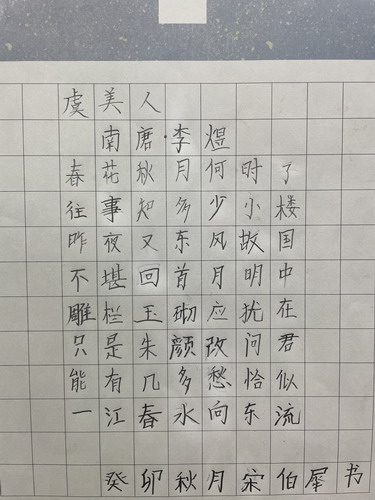 虞美人
南唐·李煜
春花秋月何时了
往事知多少小楼
昨夜又东风故国
不堪回首月明中
雕栏玉砌应扰在
只是朱颜改问君
能有几多愁恰似
一江春水向东流
癸卯秋月宋伯犀书